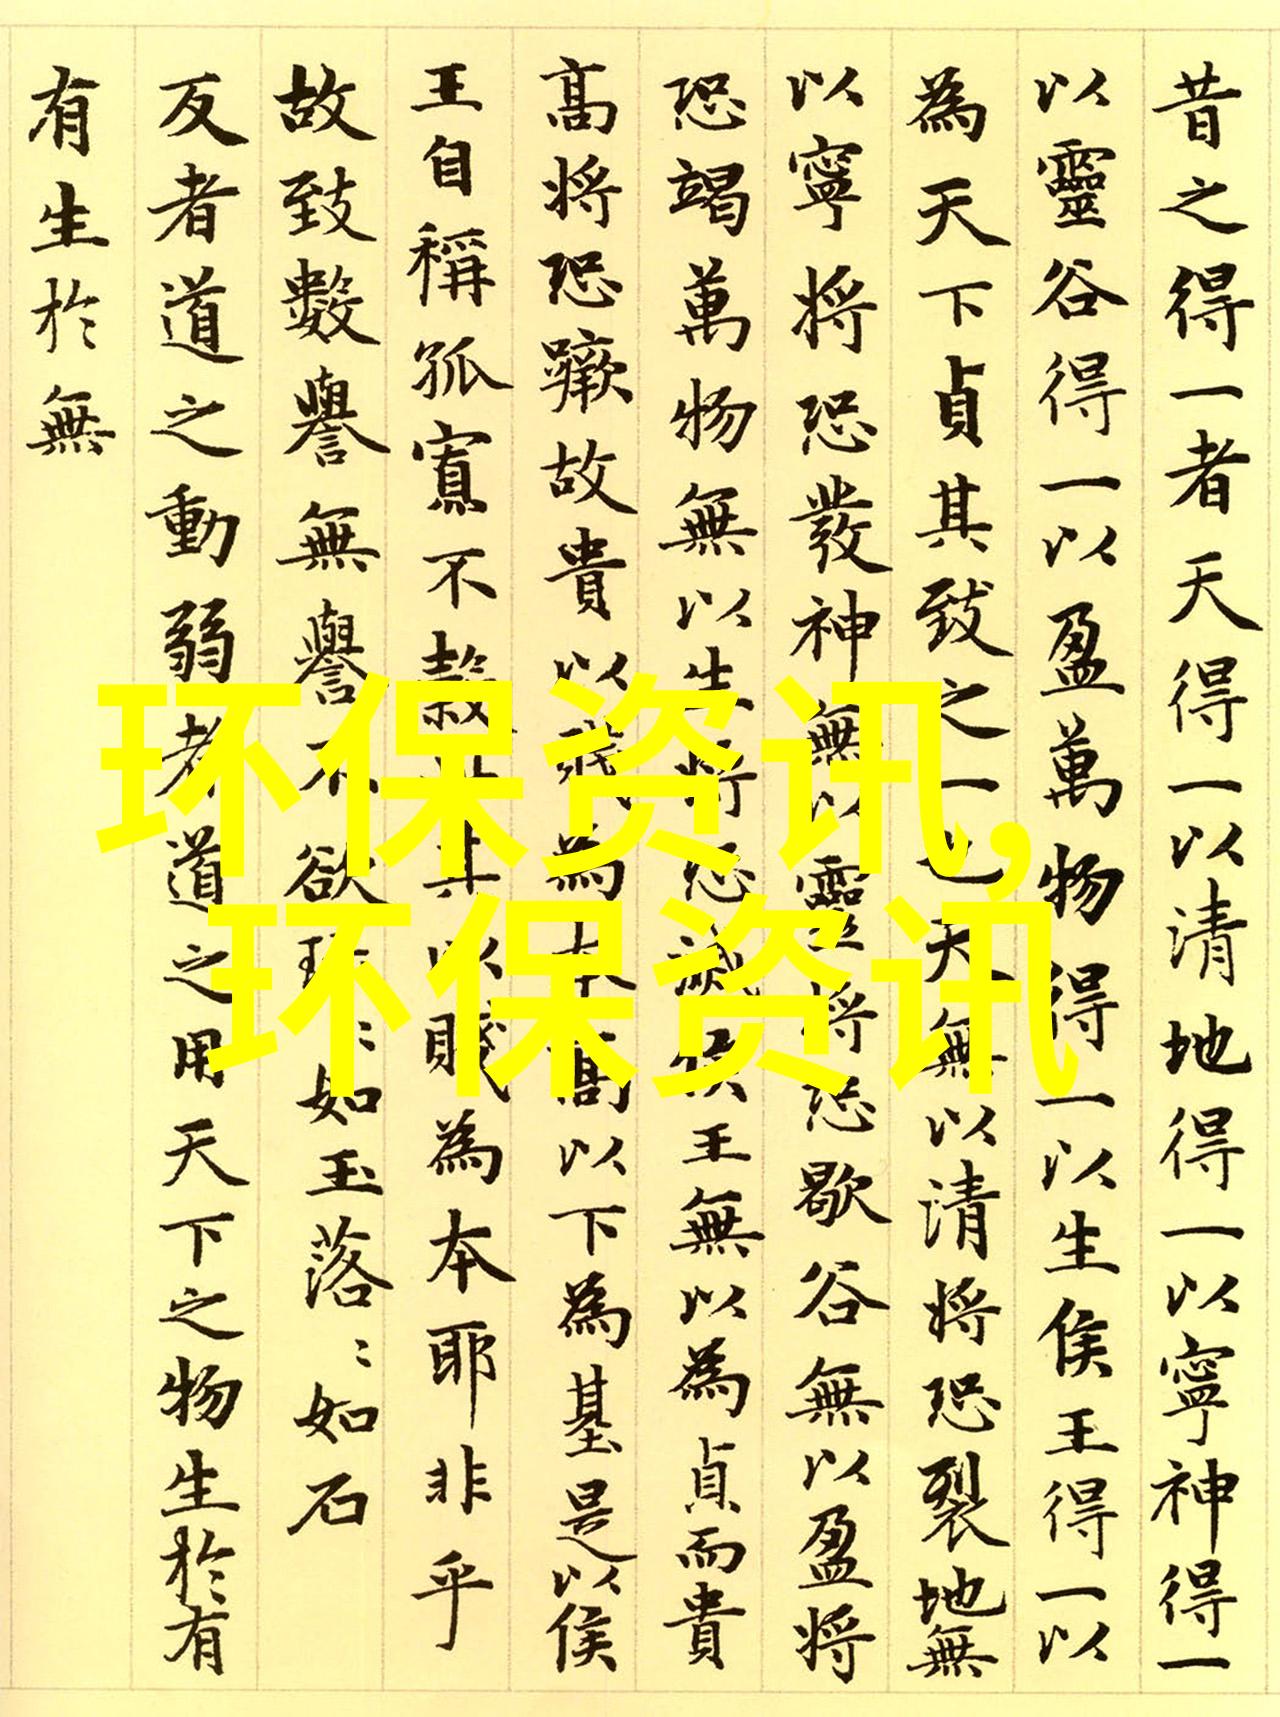 昔之得一者天得一以清地得一以寧神得一
以靈谷得一以盈萬物得一以生侯王得一以
為天下貞其致之一也天無以清将恐裂地無
以寧将恐發神無以靈将恐歇谷無以盈将
恐竭萬物無以生将恐滅侯王無以為貞而貴
髙将恐蹶故貴以賤為本髙以下為基是以侯
王自稱孤寡不穀此其以賤為本耶非乎
故致數譽無譽不欲琭〻如玉落〻如石
反者道之動弱者道之用天下之物生於有
有生於無
环保资讯,
环保资讯